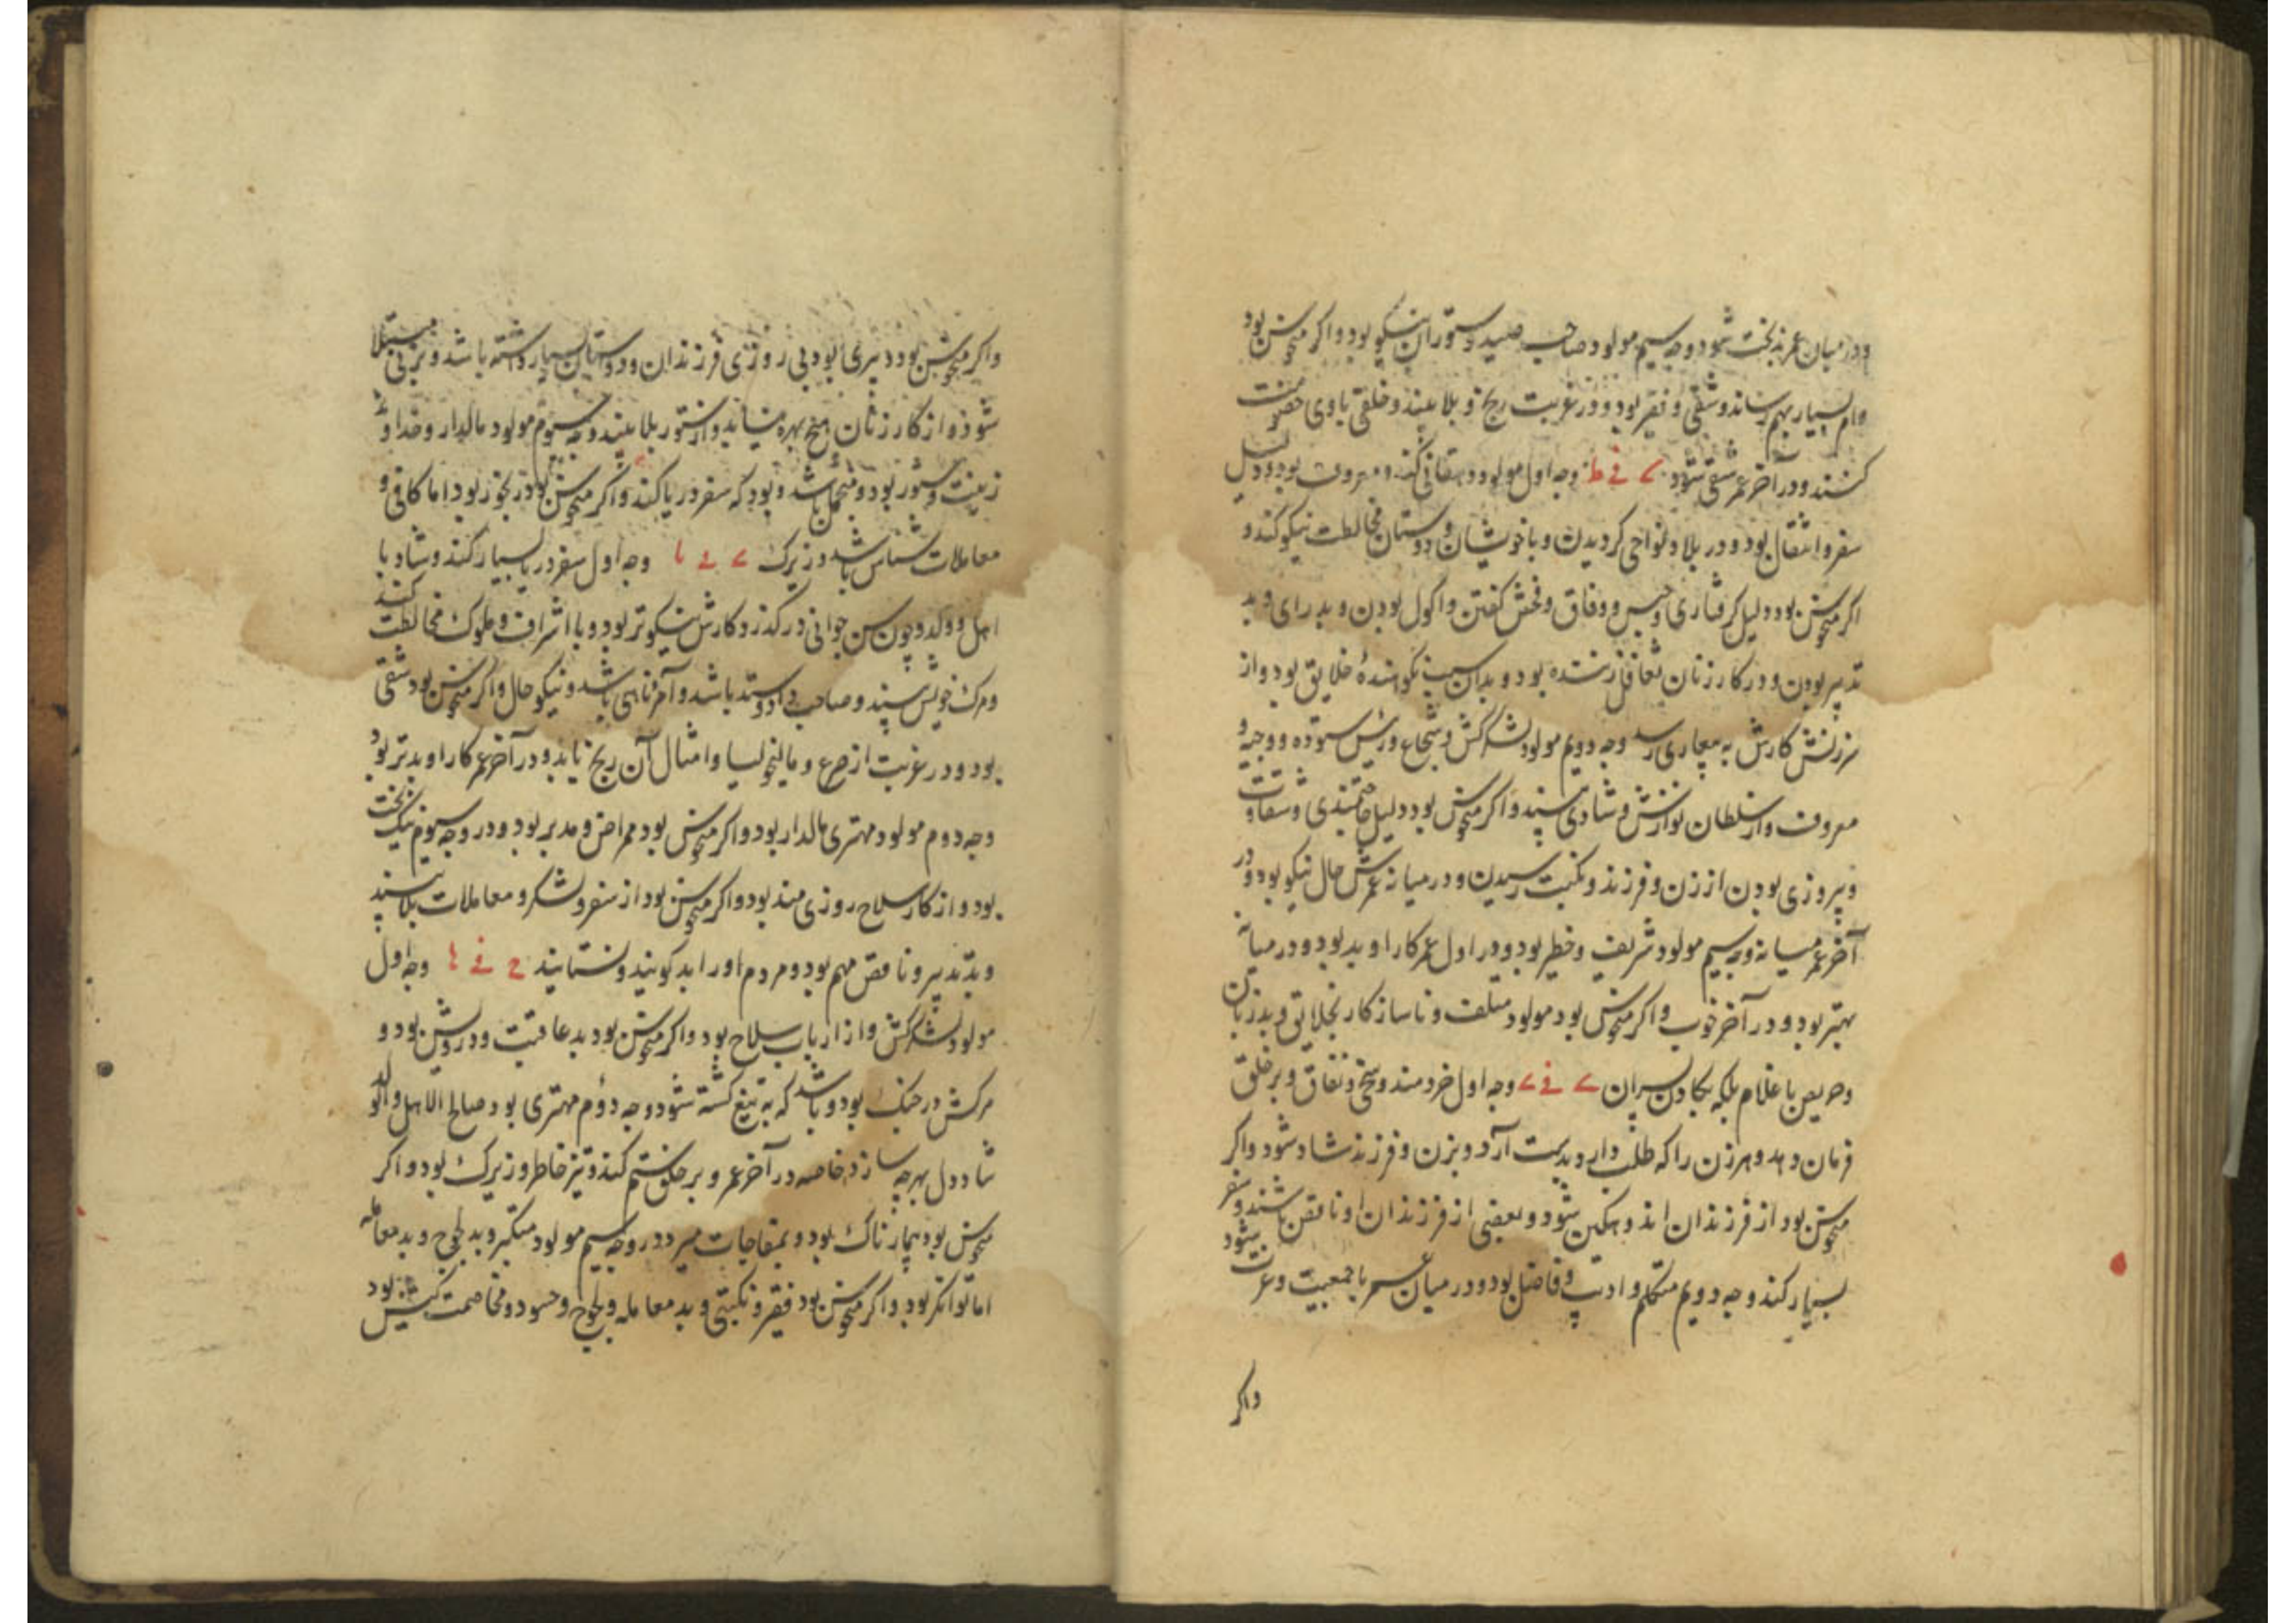 ودر میان عمر بدبخت شود وجه سیم مولود صاحب صید و ستوران نیکو بود و اکر منحوس بود
وام بسیار بهم رساند و شقی و فقیر بود و در غربت رنج و بلا بیند و خلقی با وی خصومت
کنند و در آخر عمر شقی شود ے فے ط وجه اول مولود دهقانی کند و معروف بود و دلیل
سفر و انتقال بود و در بلاد و نواحی کردیدن و با خویشان و دوستان مخالطت نیکو کند و
اکر منحوس بود دلیل کرفتاری و حبس و وفاق و فحش کفتن و اکول بودن و بد رای و بد
تدبیر بودن و در کار زنان تغافل زننده بود و بدان سبب نکوهندهٔ خلایق بود و از
سرزنش کارش به بیچاری رسد وجه دویم مولود لشکرکش و شجاع و رئیس ستوده و وجیه و
معروف و از سلطان نوازش و شادی بیند و اکر منحوس بود دلیل حاجتمندی و شقاوت
و پیروزی بودن از زن و فرزند و نکبت رسیدن و در میانه عمرش حال نیکو بود و در
آخر عمر میانه وجه سیم مولود شریف و خطیر بود و در اول عمر کار او بد بود و در میانه
بهتر بود و در آخر خوب و اکر منحوس بود مولود متلف و ناسازکار بخلایق و بد زبان
و حریص با غلام بلکه بکادن پسران ے فے ے وجه اول خردمند و سخی و نفاق و بر خلق
فرمان دهد و هر زن را که طلب دارد بدست آرد و بزن و فرزند شاد شود و اکر
منحوس بود از فرزندان اندوهکین شود و بعضی از فرزندان او ناقص باشند و سفر
بسیار کند وجه دویم متکلم و ادیب و فاضل بود و در میان عمر با جمعیت و عزت شود
واکر
واکر منحوس بود دبیری بود بی روزی فرزندان و دوستان بسیار داشته باشد و بزنی مبتلا
شود و از کار زنان هیچ بهره نیابد و از ستور بلا بیند وجه سیوم مولود مالدار و خداوند
زینت و ستور بود و منجم باشد و بود که سفر دریا کند و اکر منحوس بود بخوز بود اما کافی و
معاملات شناس باشد و زیرک ے فے یا وجه اول سفر دریا بسیار کند و شاد با
اهل و ولد و چون سن جوانی در کذرد کارش نیکوتر بود و با اشراف و ملوک مخالطت کند
و مرک خویش بیند و صاحب داد و ستد باشد و آمر ناهی باشد و نیکو حال و اکر منحوس بود شقی
بود و در غربت از صرع و مالیخولیا و امثال آن رنج یابد و در آخر عمر کار او بدتر بود
وجه دوم مولود مهتری مالدار بود و اکر منحوس بود ممراض و مدبر بود و در وجه سیوم نیک بخت
بود و از کار سلاح روزی مند بود و اکر منحوس بود از سفر و لشکر و معاملات بلا بیند
و بد تدبیر و ناقص مهم بود و مردم او را بد کویند و نستایند ح فے ا وجه اول
مولود لشکرکش و از ارباب سلاح بود و اکر منحوس بود بد عاقبت و درویش بود و
مرکش در جنک بود و باشد که به تیغ کشته شود وجه دؤم مهتری بود صالح الاهل والولد
شاد دل بهرچه سازد خاصه در آخر عمر و بر خلق ستم کند و تیز خاطر و زیرک بود و اکر
منحوس بود بیمارناک بود و بمفاجات میرد و در وجه سیم مولود متکبر و بد لجوج و بد معامله
اما توانکر بود و اکر منحوس بود فقیر و نکبتی و بد معامله و لجوج و حسود و مخاصمت کیش بود